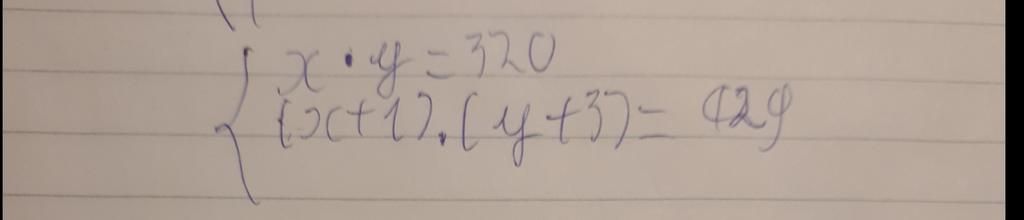 x · y = 320
(x+1).(y+3) = 429